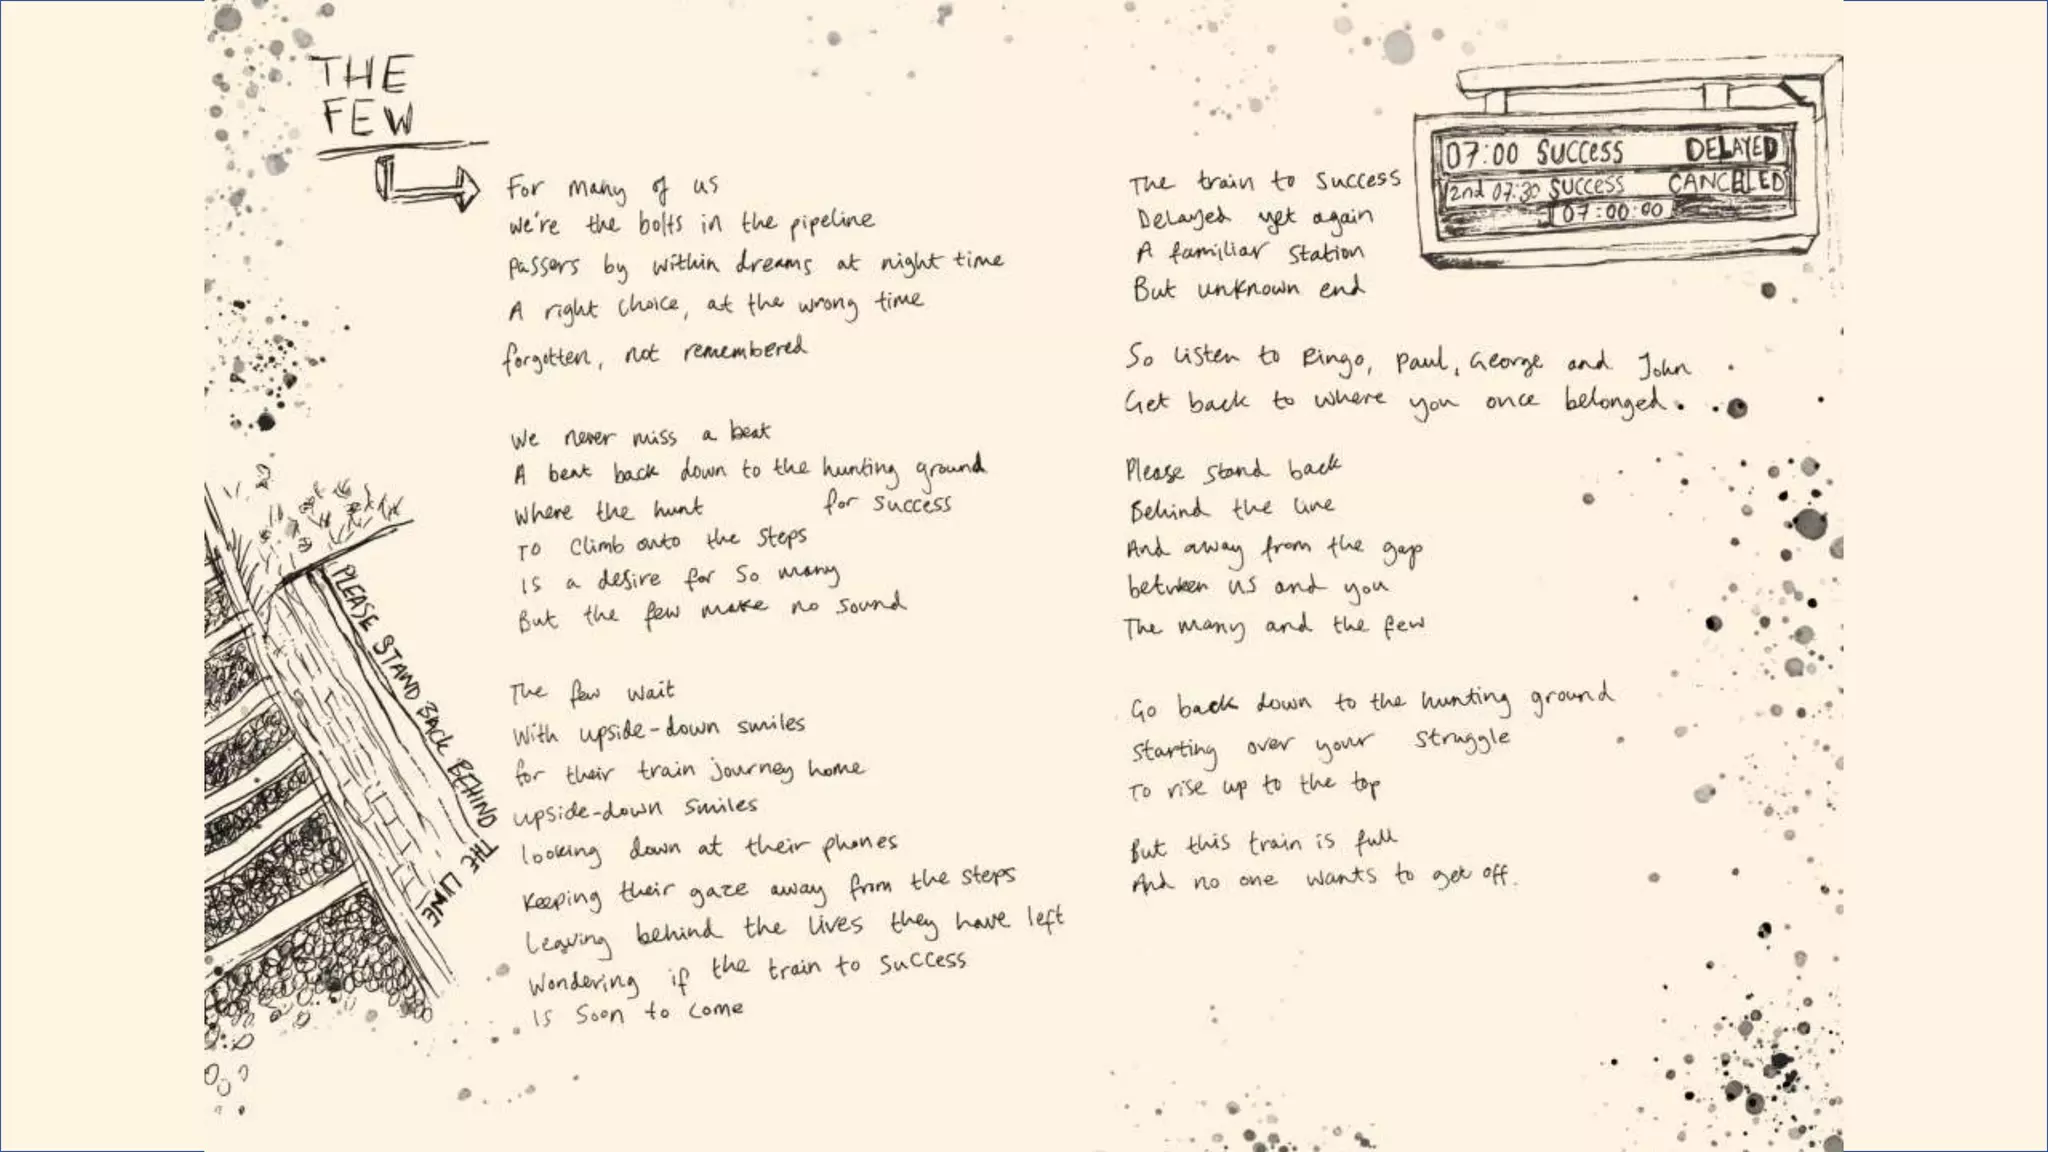 THE
FEW
For many of us
We're the bolts in the pipeline
Passers by within dreams at night time
A right choice, at the wrong time
forgotten, not remembered
We never miss a beat
A beat back down to the hunting ground
Where the hunt for success
To climb onto the steps
Is a desire for so many
But the few make no sound
The few wait
With upside-down smiles
for their train journey home
upside-down smiles
looking down at their phones
Keeping their gaze away from the steps
Leaving behind the lives they have left
Wondering if the train to success
Is soon to come
PLEASE STAND BACK BEHIND
THE LINE
07:00 SUCCESS DELAYED
2nd 07:30 SUCCESS CANCELED
07:00:00
The train to success
Delayed yet again
A familiar station
But unknown end
So listen to Ringo, Paul, George and John
Get back to where you once belonged.
Please stand back
Behind the line
And away from the gap
between us and you
The many and the few
Go back down to the hunting ground
Starting over your struggle
To rise up to the top
But this train is full
And no one wants to get off.